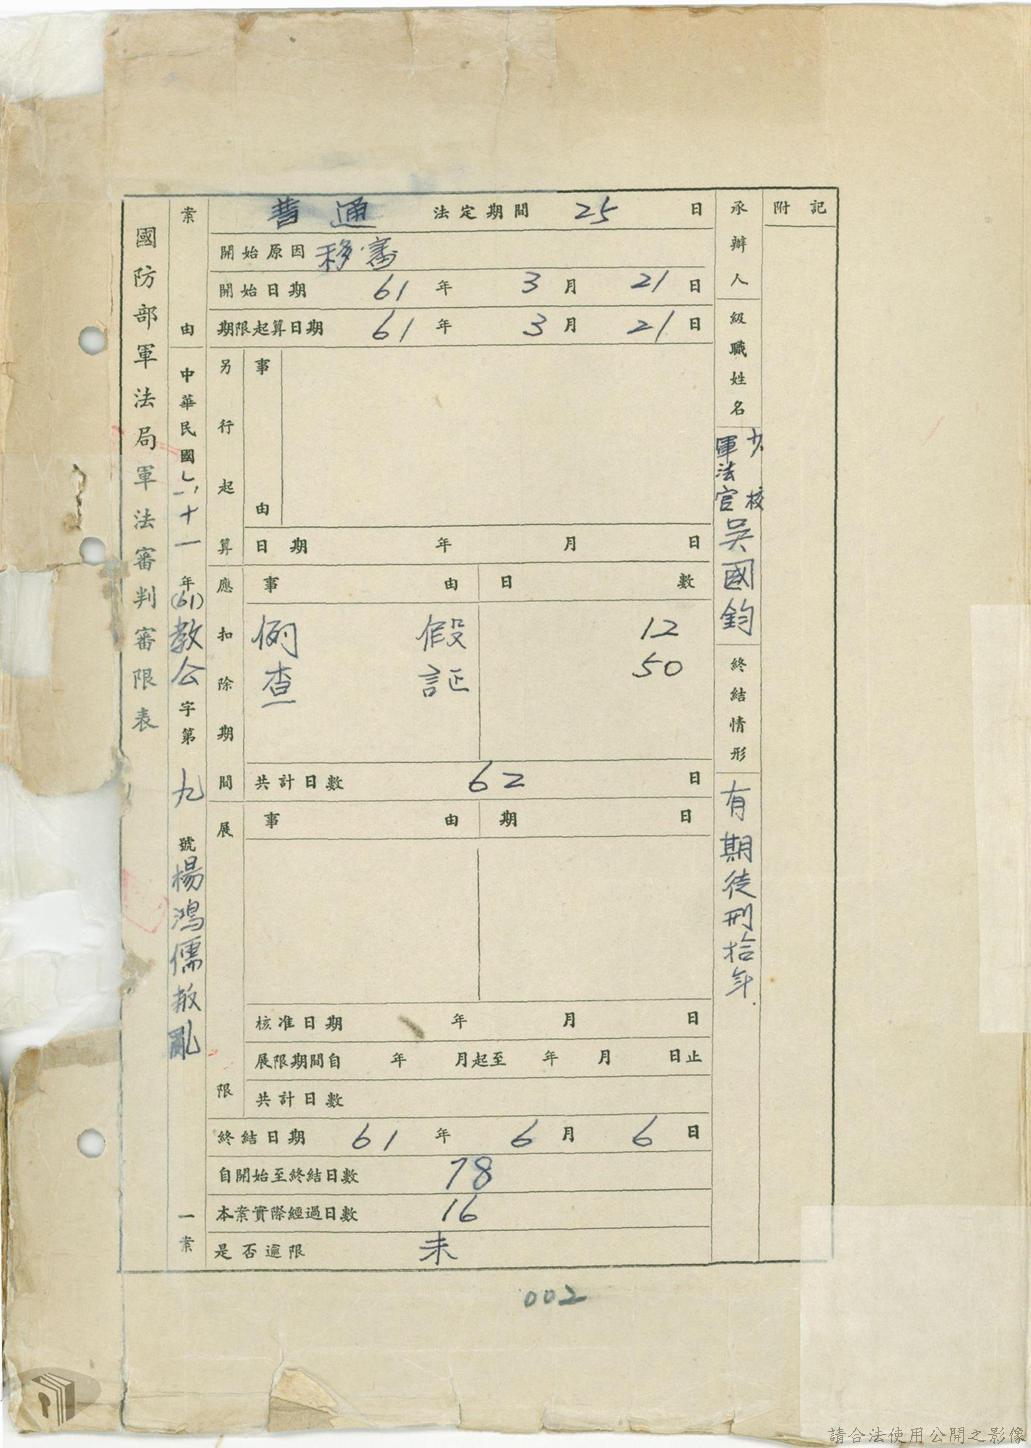 國防部軍法局軍法審判審限表
案由 中華民國六十一年(61)教公字第九號楊鴻儒叛亂一案
普通 法定期間 25 日
開始原因 移審
開始日期 61 年 3 月 21 日
期限起算日期 61 年 3 月 21 日
另行起算
事由
日期 年 月 日
應扣除期間
事由 日數
例假 12
查証 50
共計日數 62 日
展限
事由 期日
核准日期 年 月 日
展限期間自 年 月起至 年 月 日止
共計日數
終結日期 61 年 6 月 6 日
自開始至終結日數 78
本案實際經過日數 16
是否逾限 未
承辦人級職姓名 少校軍法官吳國鈞
終結情形 有期徒刑拾年.
附記
002
請合法使用公開之影像